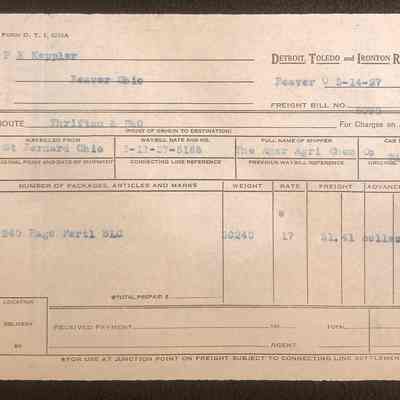 FORM D. T. I. 625A
P E Keppler
DETROIT, TOLEDO AND IRONTON R
Beaver Ohio
Beaver O 5-14-27
FREIGHT BILL NO.
ROUTE Thrifton & B&O For Charges on
(POINT OF ORIGIN TO DESTINATION)
WAYBILLED FROM WAYBILL DATE AND NO. FULL NAME OF SHIPPER CAR
St Bernard Ohio 5-12-27-5165 The Amer Agri Chem Co
ORIGINAL POINT AND DATE OF SHIPMENT CONNECTING LINE REFERENCE PREVIOUS WAYBILL REFERENCE ORIGINAL
NUMBER OF PACKAGES, ARTICLES AND MARKS WEIGHT RATE FREIGHT ADVANCE
240 Bags Fertl SLC 30240 17 51.41 collec
TOTAL PREPAID $
LOCATION
DELIVERY
BY
RECEIVED PAYMENT 192 TOTAL
AGENT.
FOR USE AT JUNCTION POINT ON FREIGHT SUBJECT TO CONNECTING LINE SETTLEMENT